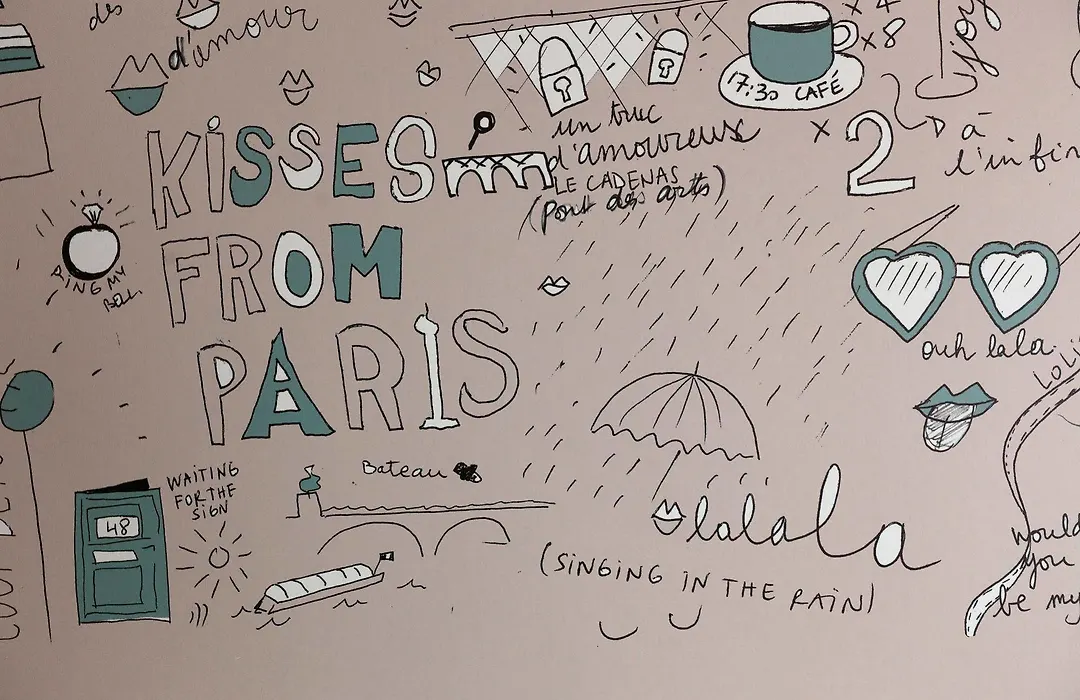 des
d'amour
KISSES
FROM
PARIS
un truc
d'amoureux
LE CADENAS
(Pont des arts)
17:30 CAFÉ
x 4
x8
joy
x 2
à
l'infin
RING MY
BELL
ouh lala
would
you
be my
WAITING
FOR THE
SIGN
48
Bateau
lalala
(SINGING IN THE RAIN)